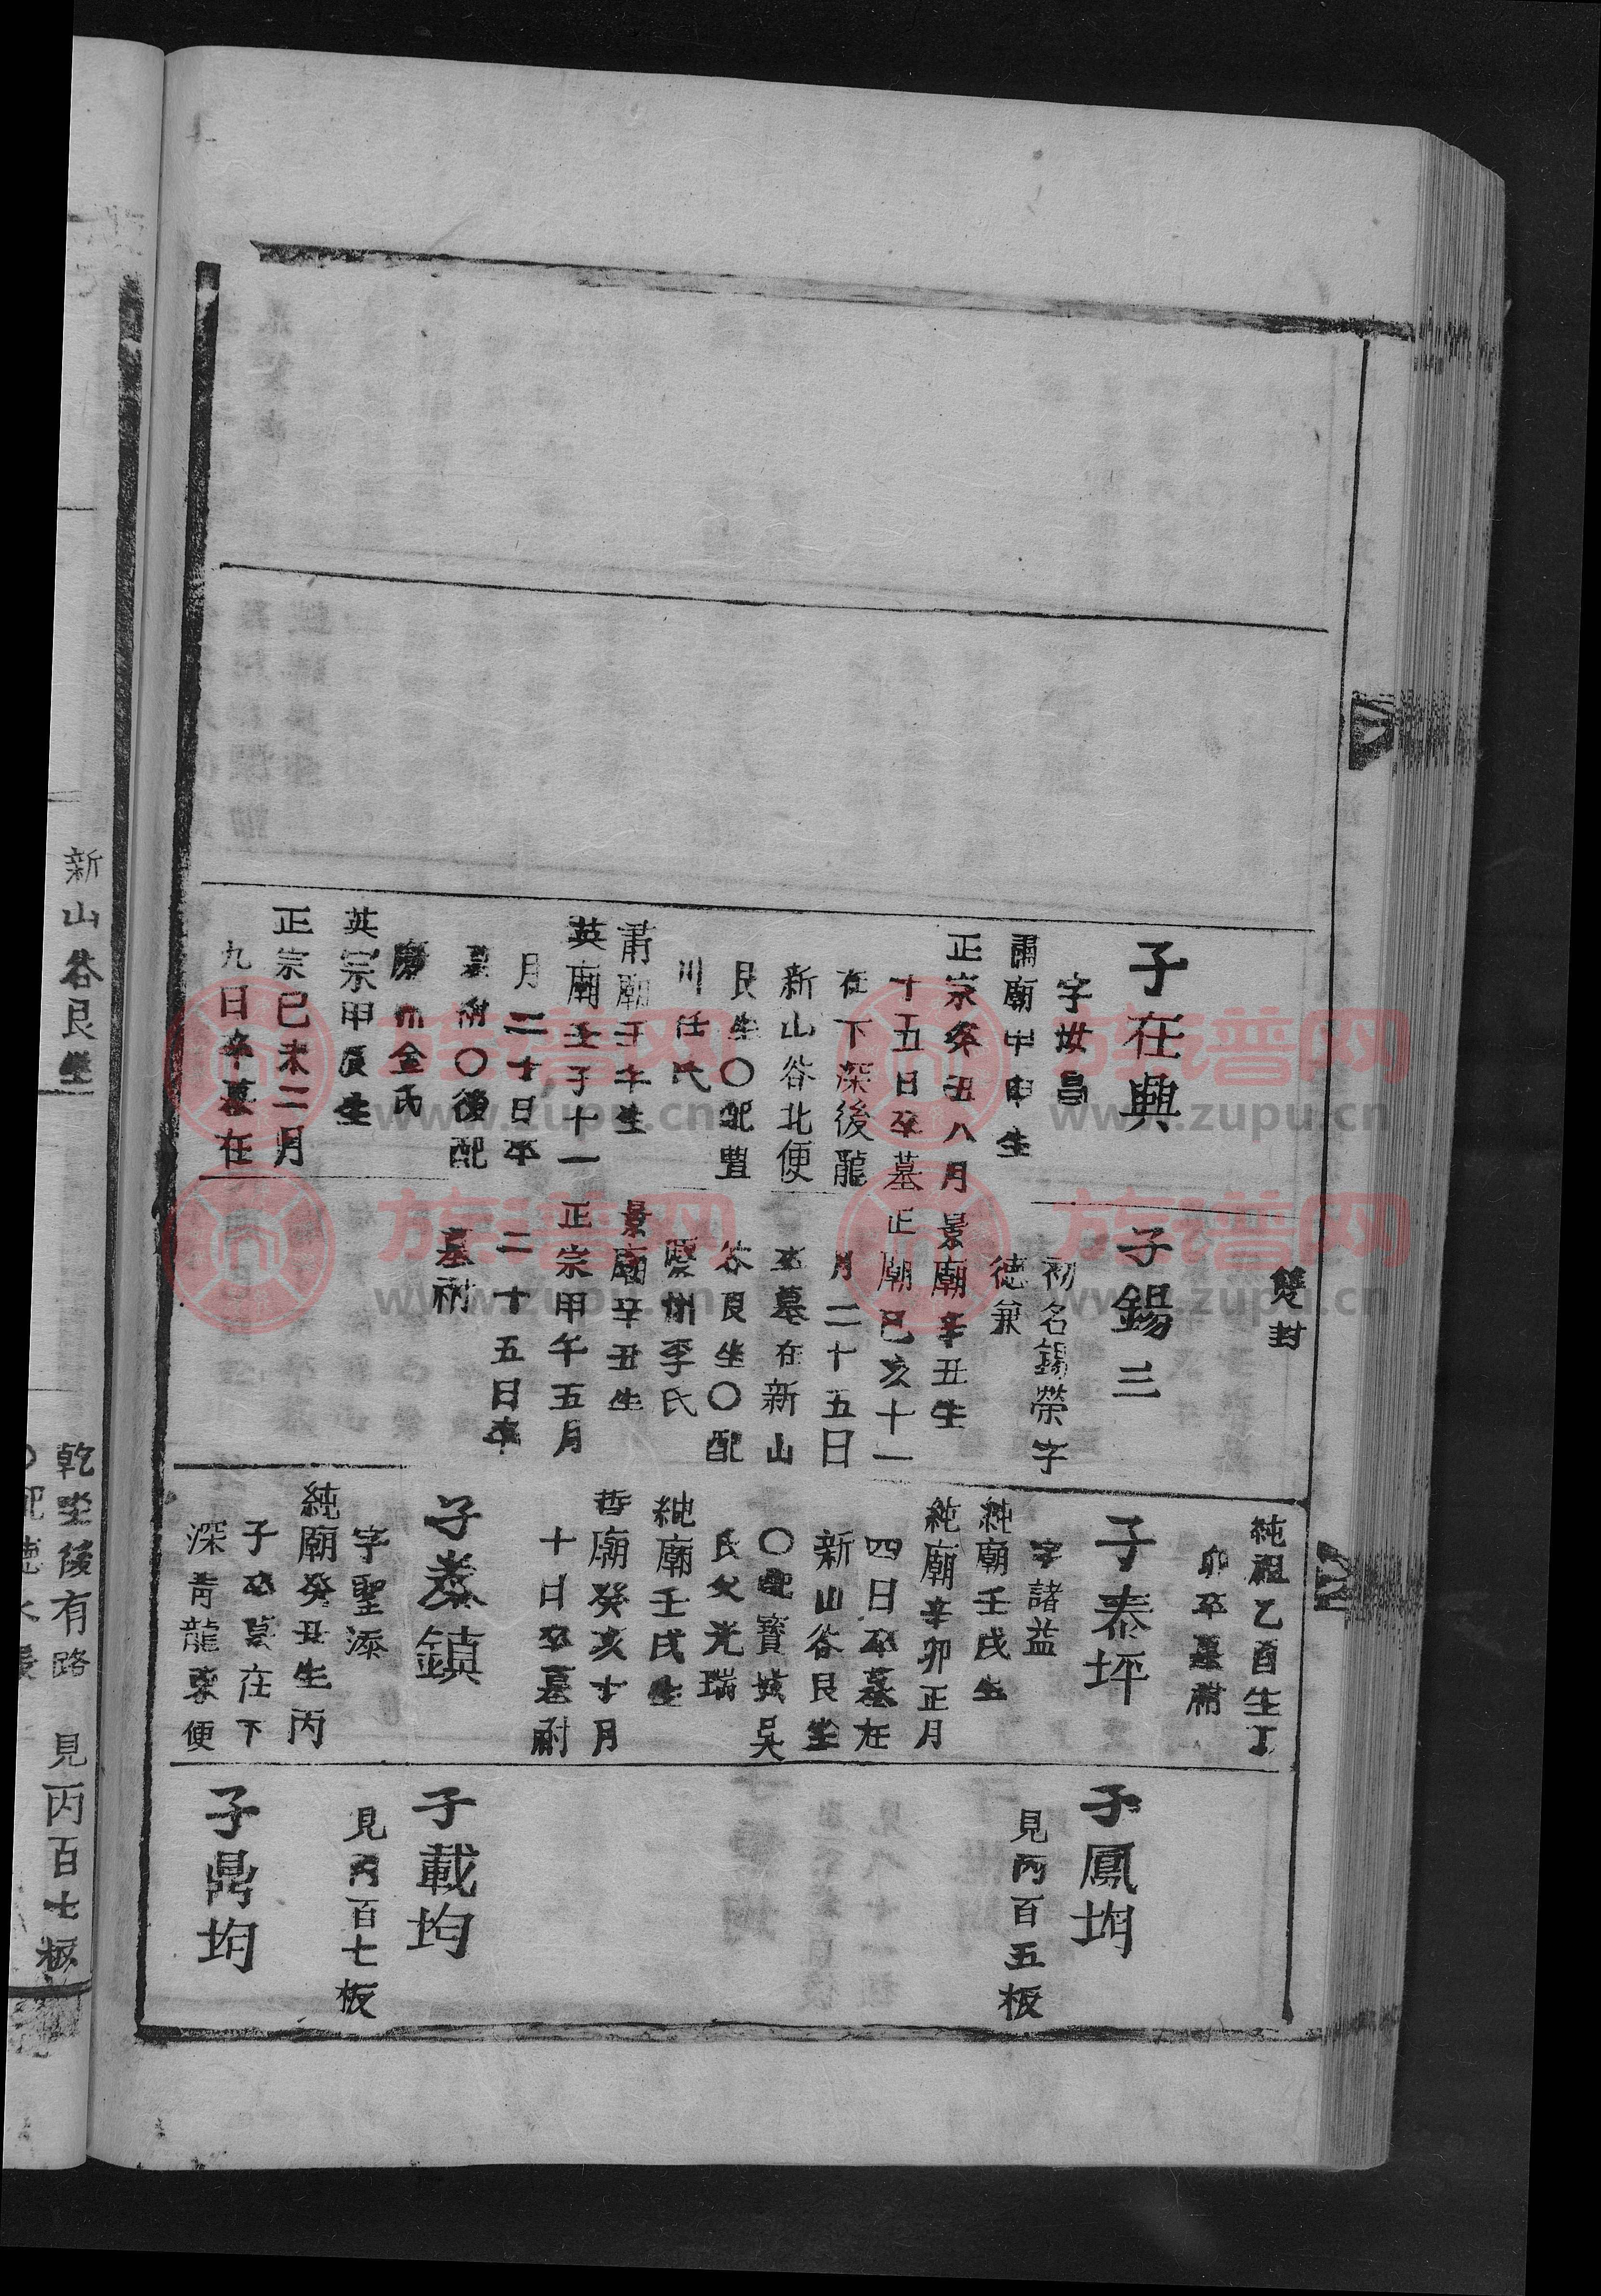 子在興
字世昌
肅廟甲申生
正宗辛丑八月
十五日卒墓
在下深後龍
新山谷北便
艮坐〇配豊
川任氏
肅廟壬午生
英廟壬子十一
月二十日卒
墓祔〇後配
慶州金氏
英宗甲辰生
正宗己未二月
九日卒墓在
雙封
子錫三
初名錫榮字
德兼
景廟辛丑生
正廟己亥十一
月二十五日
卒墓在新山
谷艮坐〇配
慶州李氏
景廟辛丑生
正宗甲午五月
二十五日卒
墓祔
純祖乙酉生丁
卯卒墓祔
子泰坪
字諸益
純廟壬戌生
純廟辛卯正月
四日卒墓在
新山谷艮坐
〇配寶城吳
氏父光瑞
純廟壬戌生
哲廟癸亥十月
十日卒墓祔
子泰鎮
字聖添
純廟癸丑生丙
子卒墓在下
深青龍東便
子鳳均
見丙百五板
子載均
見丙百七板
子鼎均
新山谷艮坐
乾坐後有路
見丙百七板
族谱网
www.zupu.cn
族谱网
www.zupu.cn
族谱网
www.zupu.cn
族谱网
www.zupu.cn